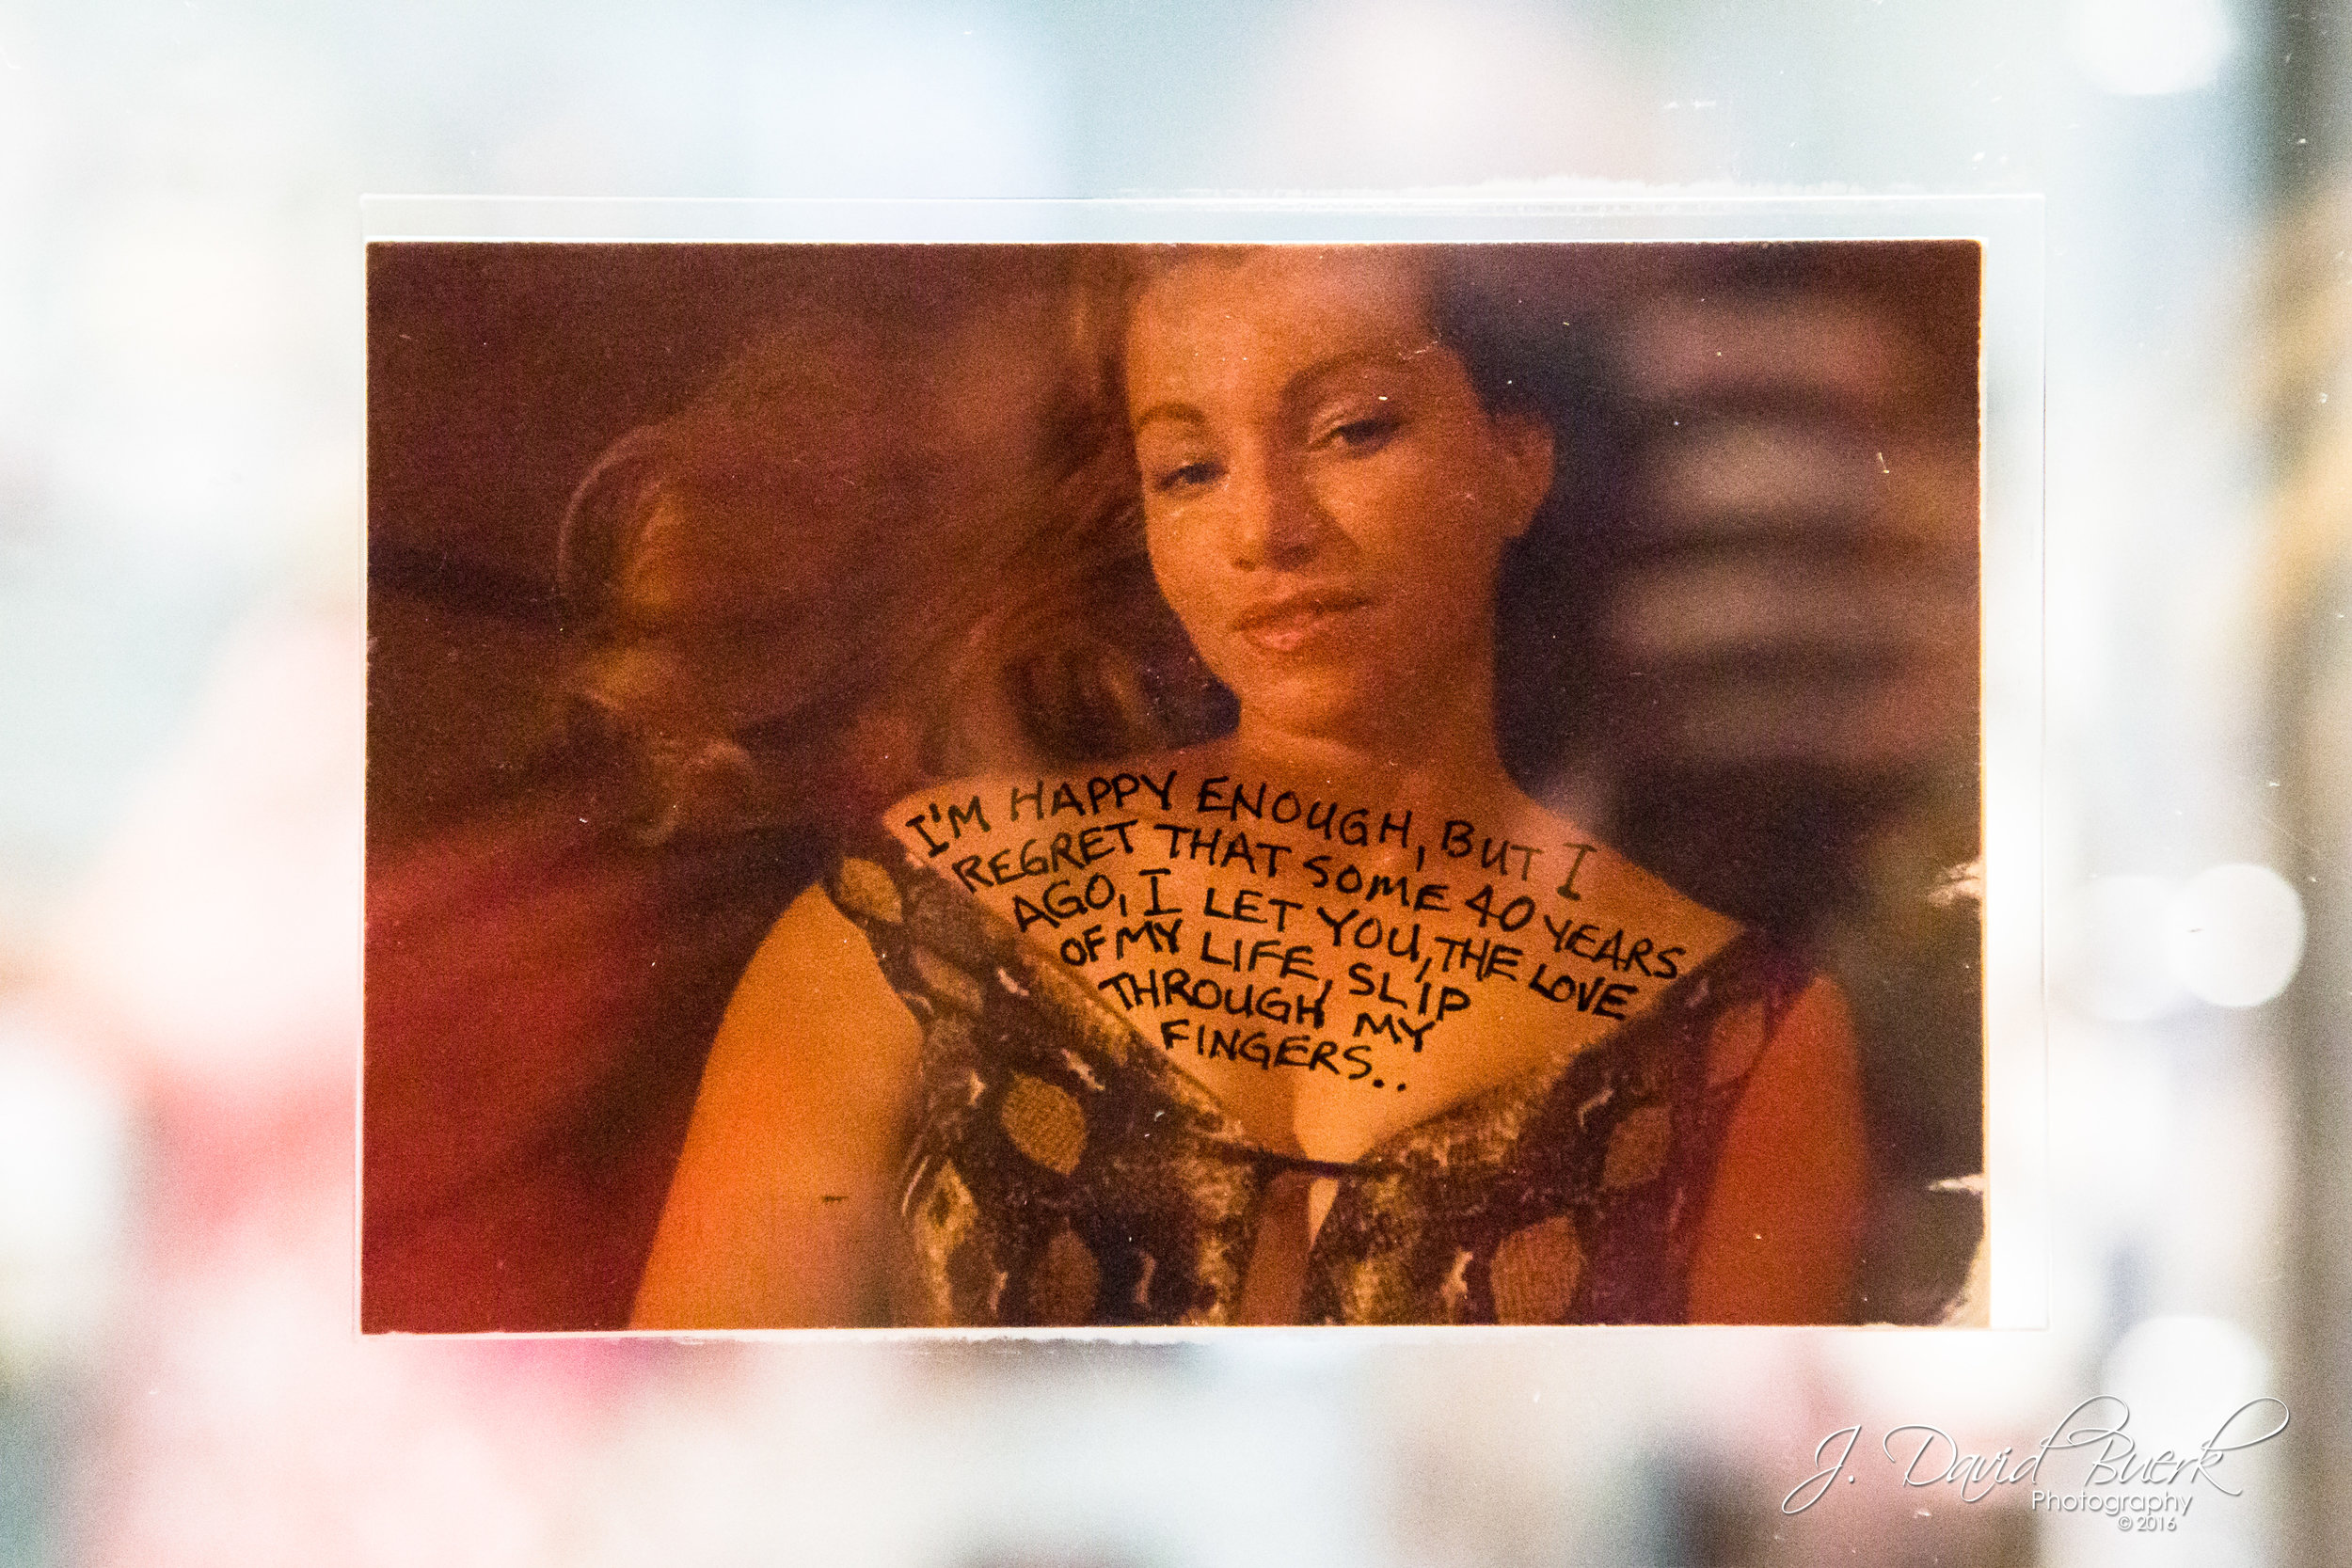 I'M HAPPY ENOUGH, BUT I
REGRET THAT SOME 40 YEARS
AGO, I LET YOU, THE LOVE
OF MY LIFE, SLIP
THROUGH MY
FINGERS..
J. David Buerk
Photography
© 2016